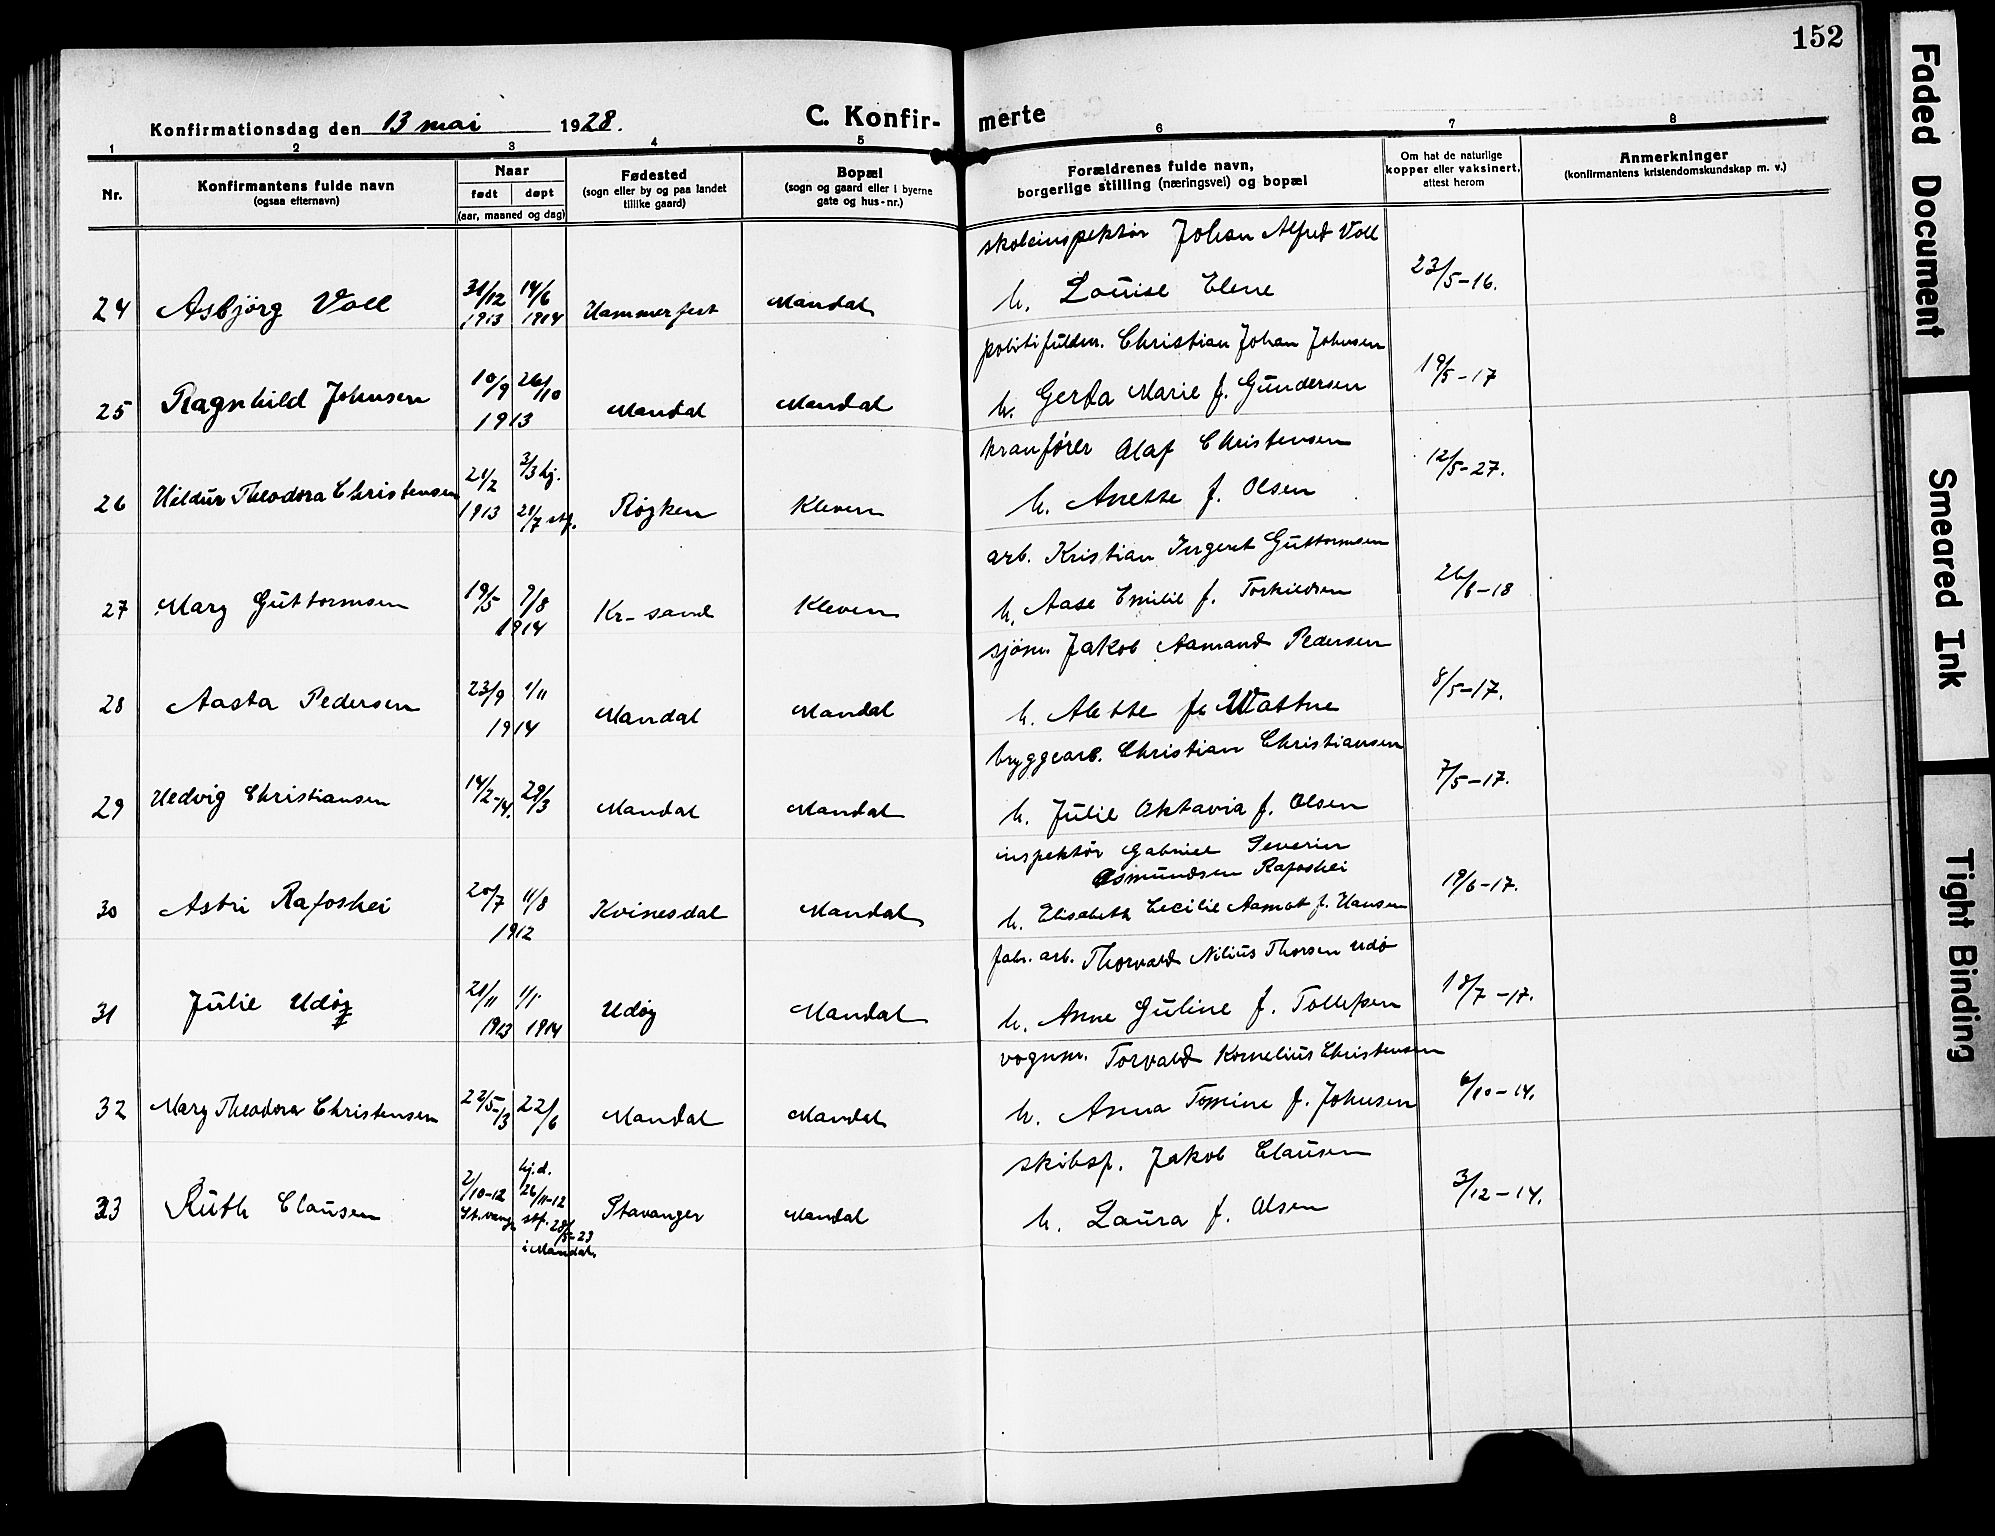 152
Konfirmationsdag den 13 mai 1928.
C. Konfir- merte
1 2 3 4 5 6 7 8
Nr.
Konfirmantens fulde navn
(ogsaa efternavn)
Naar
født døpt
(aar, maaned og dag)
Fødested
(sogn eller by og paa landet
tillike gaard)
Bopæl
(sogn og gaard eller i byerne
gate og hus-nr.)
Forældrenes fulde navn,
borgerlige stilling (næringsvei) og bopæl
Om hat de naturlige
kopper eller vaksinert,
attest herom
Anmerkninger
(konfirmantens kristendomskundskap m. v.)
skoleinspektør Johan Alfred Voll
24 Asbjörg Voll 31/12 1913 14/6 1914 Hammerfest Mandal h. Louise Elene 23/5-16.
politifuldm. Christian Johan Johnsen
25 Ragnhild Johnsen 10/9 26/10 1913 Mandal Mandal h. Gerda Marie f. Gundersen 19/5-17
kranfører Olaf Christensen
26 Hildur Theodora Christensen 21/2 1913 2/3 hj. 20/7 stf. Røyken Kleven h. Anette f. Olsen 12/5-27.
arb. Kristian Guttormsen
27 Mary Guttormsen 19/5 9/8 1914 Kr-sand Kleven h. Aase Emilie f. Torkildsen 26/6-18
sjöm. Jakob Aamand Pedersen
28 Aasta Pedersen 23/9 1/11 1914 Mandal Mandal h. Alette f. Wattne 8/5-17.
bryggearb. Christian Christiansen
29 Hedvig Christiansen 14/2-14. 29/3 Mandal Mandal h. Julie Oktavia f. Olsen 7/5-17.
inspektør Gabriel Severin
Osmundsen Rafoshei
30 Astri Rafoshei 20/7 11/8 1912 Kvinesdal Mandal h. Elisabeth Cecilie Aamot f. Hansen 19/6-17.
fabr. arb. Thorvald Nilius Thorsen Udö
31 Julie Udøy 21/11 1913 1/1 1914 Udøy Mandal h. Anne Guline f. Tollefsen 18/7-17.
vognm. Torvald Kornelius Christensen
32 Mary Theodora Christensen 22/5-13 22/6 Mandal Mandal h. Anna Tomine f. Johnsen 6/10-14.
skibsf. Jakob Clausen
33 Ruth Clausen 2/10-12 hj.d. 26/11-12 stf. 28/5-23 i Mandal. Stavanger Mandal h. Laura f. Olsen 3/12-14.
Faded Document
Smeared Ink
Tight Binding